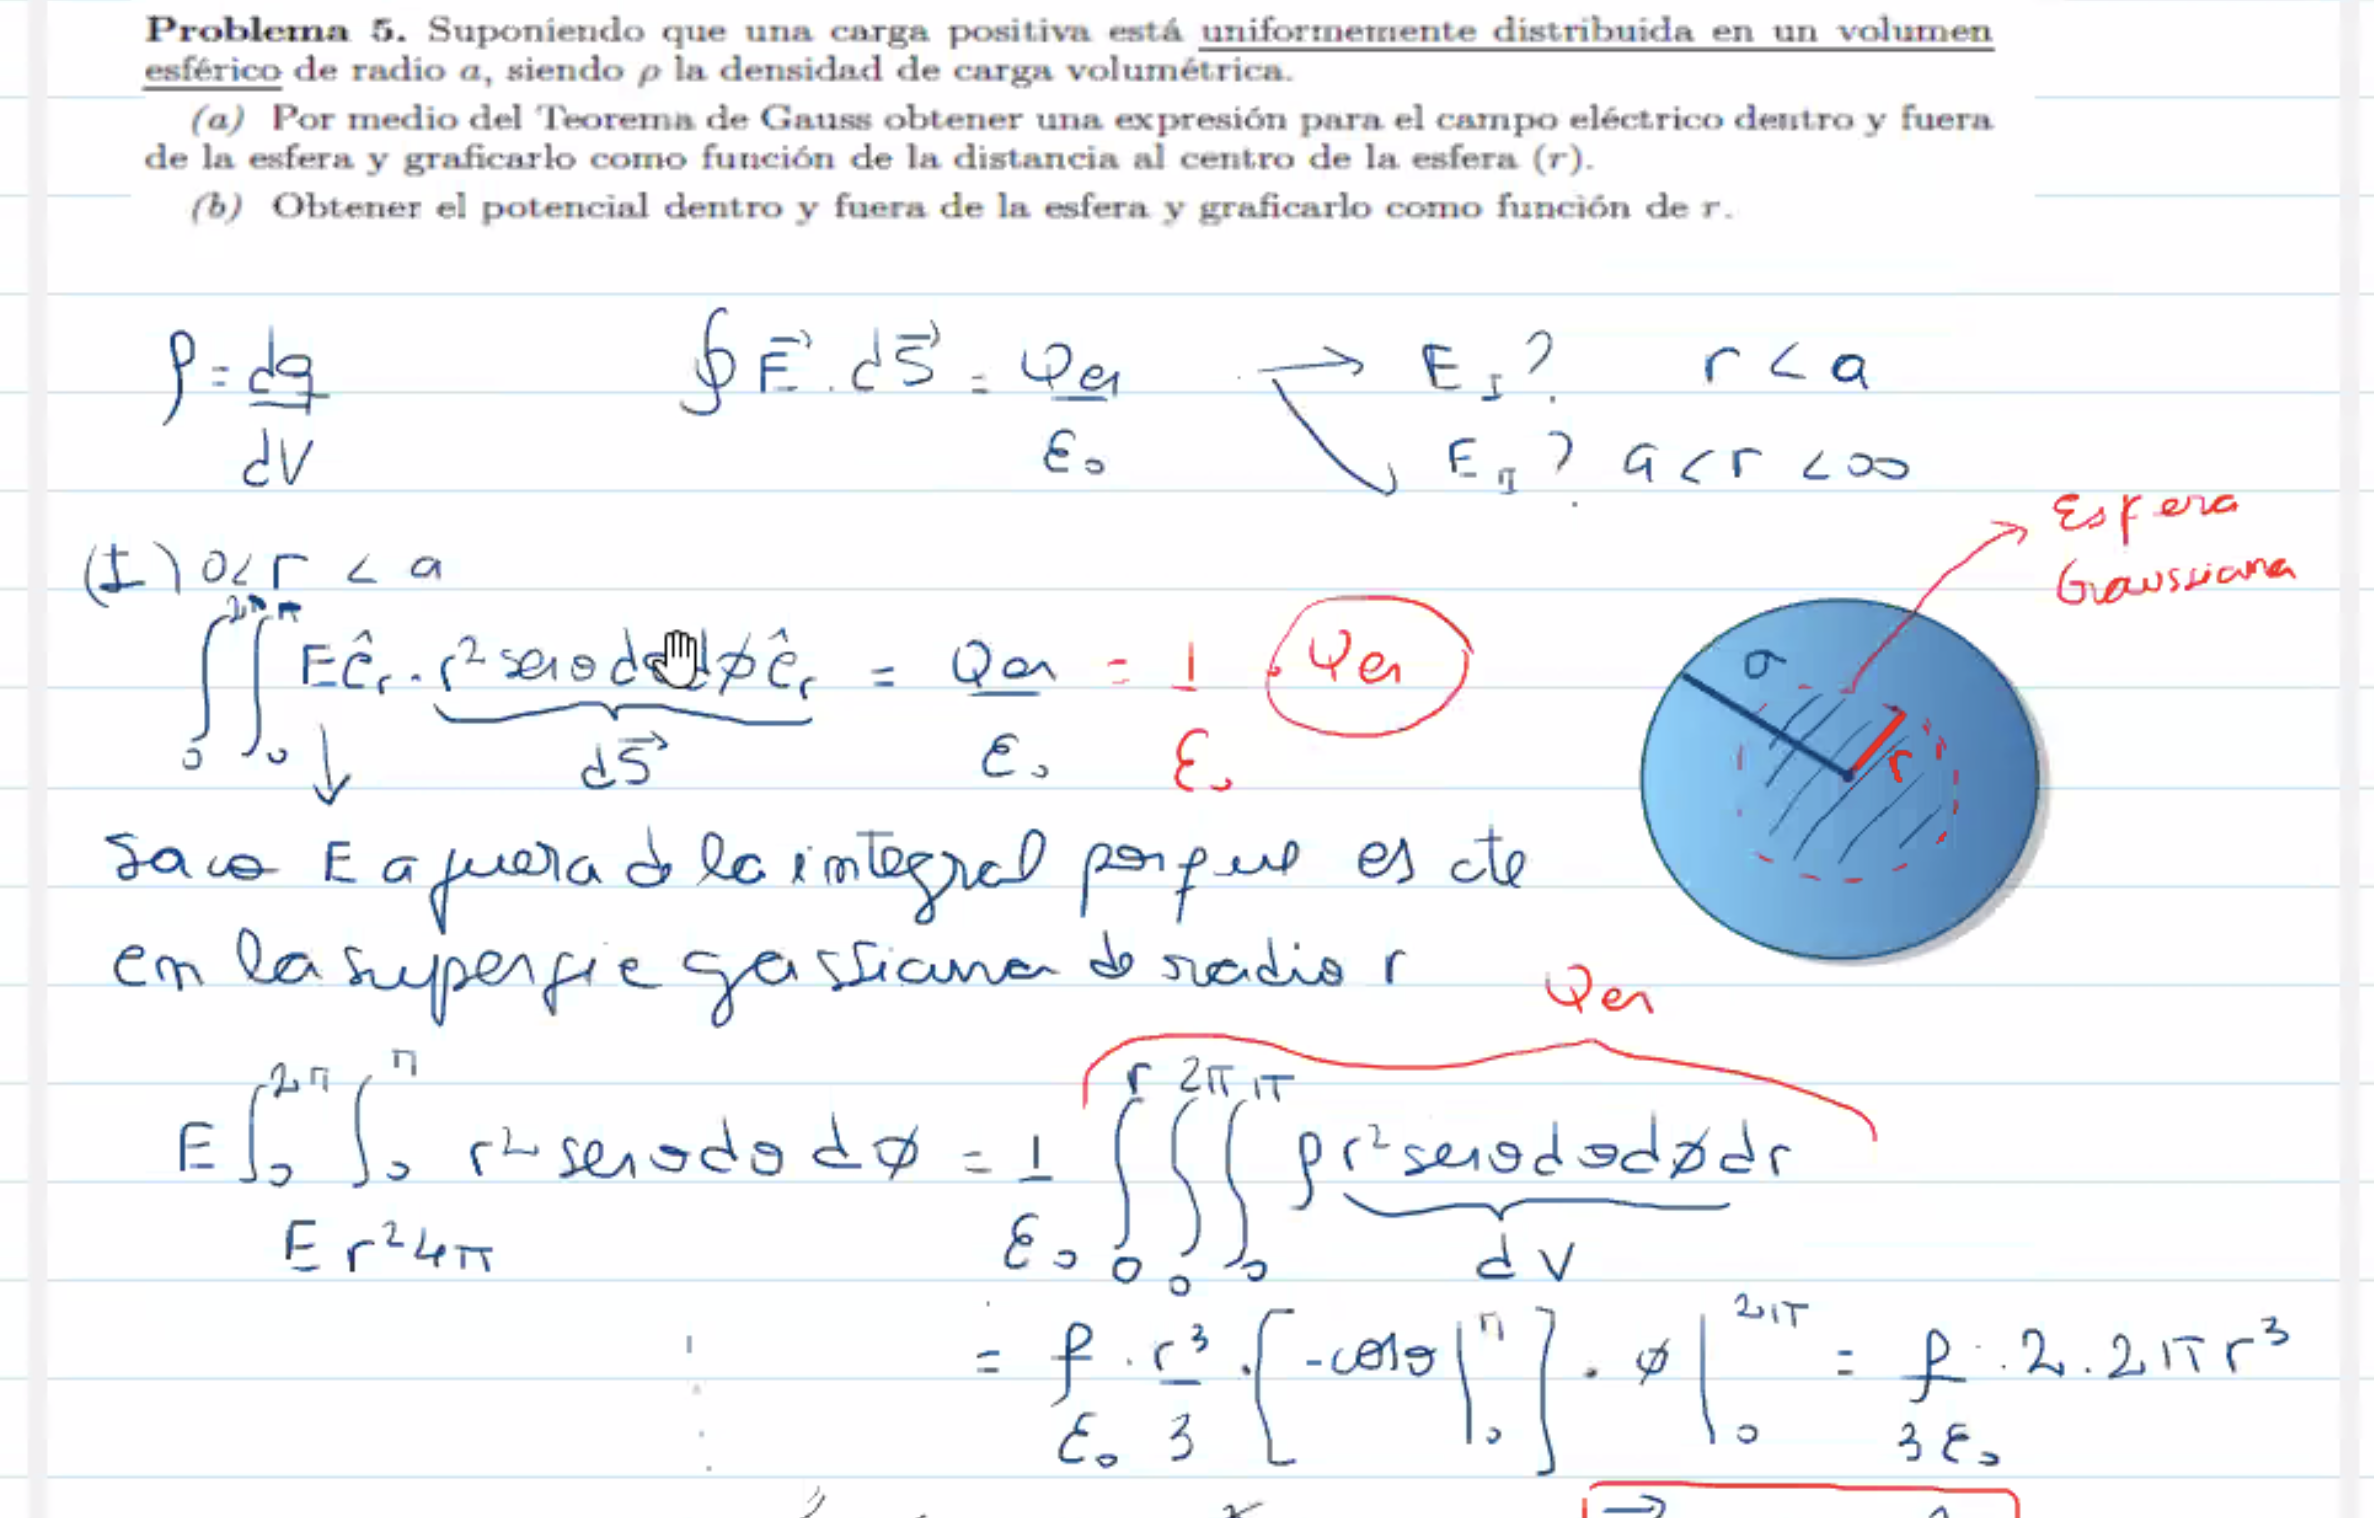 Problema 5. Suponiendo que una carga positiva está uniformemente distribuida en un volumen
esférico de radio a, siendo ρ la densidad de carga volumétrica.
(a) Por medio del Teorema de Gauss obtener una expresión para el campo eléctrico dentro y fuera
de la esfera y graficarlo como función de la distancia al centro de la esfera (r).
(b) Obtener el potencial dentro y fuera de la esfera y graficarlo como función de r.
ρ = dq/dV
∮ E⃗ . dS⃗ = Qen/ε₀ → E_I ? r < a
E_II ? a < r < ∞
Esfera
Gaussiana
(I) 0 < r < a
∫₀^2π ∫₀^π E ê_r . r² senθ dθ dφ ê_r = Qen/ε₀ = 1/ε₀ . Qen
dS⃗
a
r
saco E afuera d la integral porque es cte
en la superfie gassiana d radio r
Qen
E ∫₀^2π ∫₀^π r² senθ dθ dφ = 1/ε₀ ∫₀^r ∫₀^2π ∫₀^π ρ r² senθ dθ dφ dr
E r² 4π
dV
= ρ/ε₀ . r³/3 . [ -cosθ |₀^π ] . φ |₀^2π = ρ/3ε₀ . 2 . 2π r³